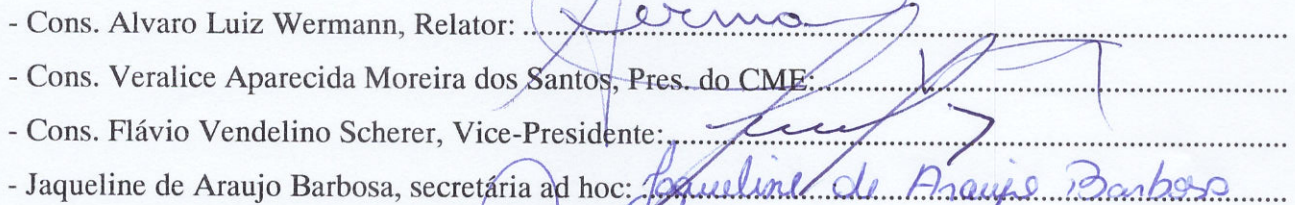 - Cons. Alvaro Luiz Wermann, Relator:
- Cons. Veralice Aparecida Moreira dos Santos, Pres. do CME:
- Cons. Flávio Vendelino Scherer, Vice-Presidente:
- Jaqueline de Araujo Barbosa, secretária ad hoc: Jaqueline de Araujo Barbosa